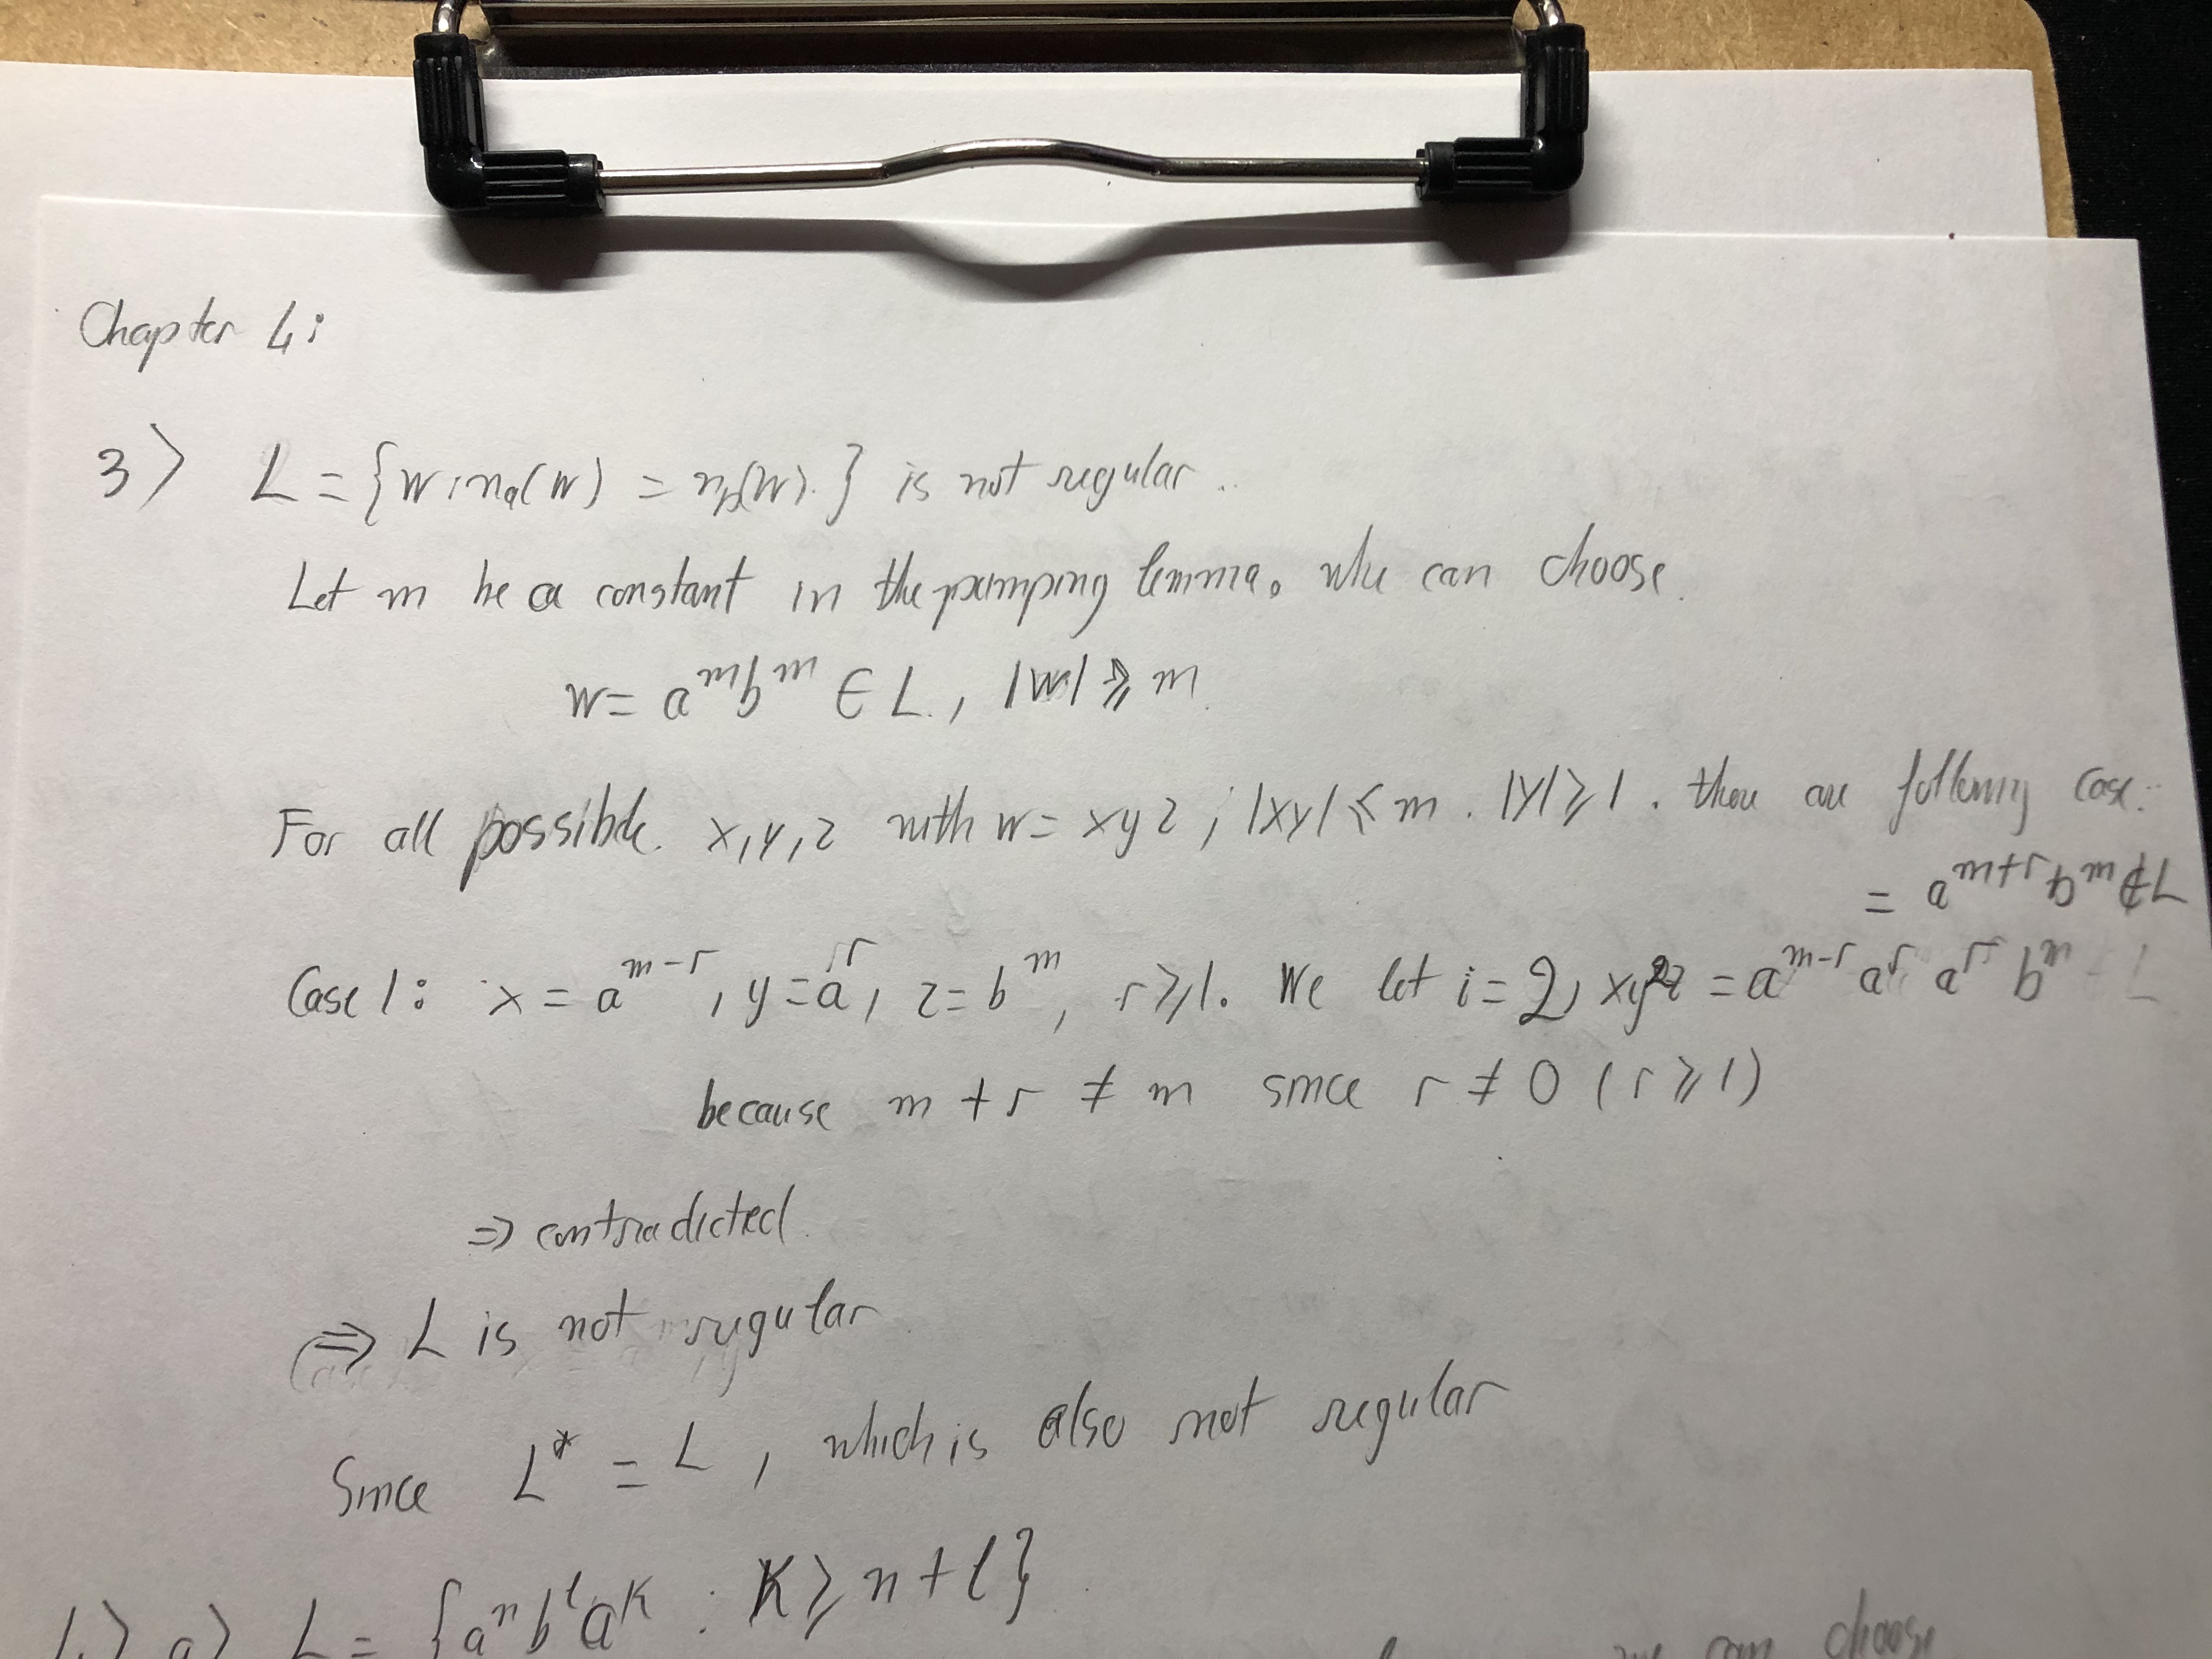 Chapter 4:
3) L = {w : nₐ(w) = n_b(w).} is not regular.
Let m be a constant in the pumping lemma. whe can choose.
w = aᵐbᵐ ∈ L, |w| ⩾ m
For all possible. x, y, z with w = xyz ; |xy| ⩽ m . |y| ⩾ 1 . there are following case:
= aᵐ⁺ʳbᵐ ∉ L
Case 1: x = aᵐ⁻ʳ, y = aʳ, z = bᵐ, r ⩾ 1. We let i = 2, xy²z = aᵐ⁻ʳ aʳ aʳ bᵐ
because m + r ≠ m since r ≠ 0 (r ⩾ 1)
⇒ contradicted.
⇒ L is not regular
Since L* = L, which is also not regular
4) a) L = {aⁿbˡaᵏ : K ⩾ n + l}
we can choose